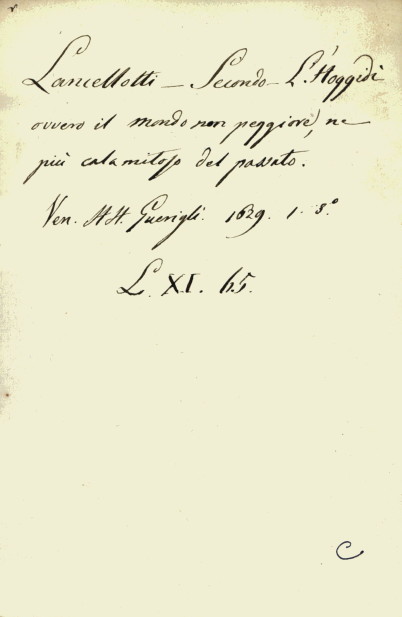 Lancellotti – Secondo – L'Hoggidi
ovvero il mondo non peggiore, ne
più calamitoso del passato.
Ven. HH. Guerigli. 1629. 1. 8.º
L. XI. 65.
C